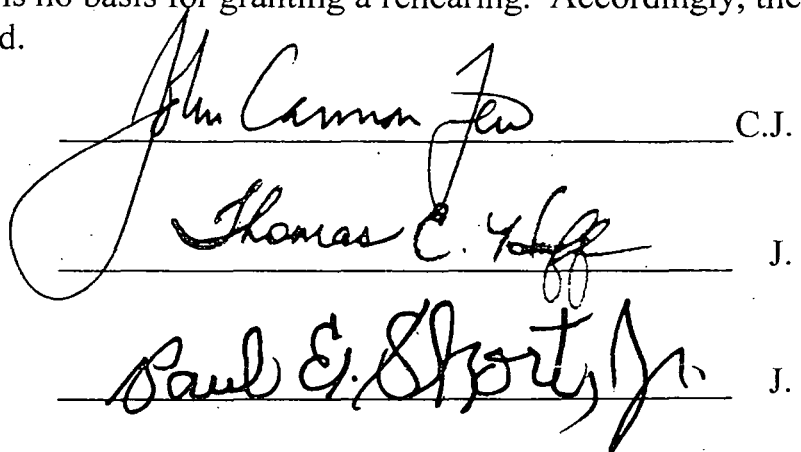 is no basis for granting a rehearing. Accordingly, the
d.
John Cannon Few C.J.
Thomas E. Huff J.
Paul E. Short, Jr. J.